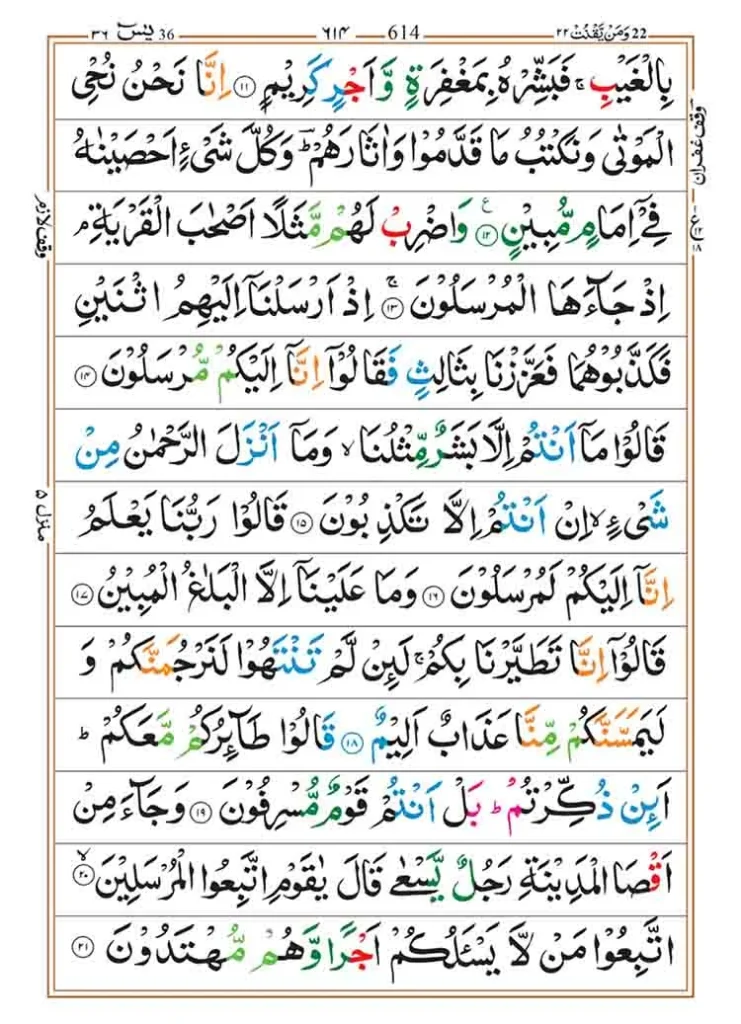 36 یٰسٓ ٣٦
614 ٦١٤
22 وَمَنْ يَّقْنُتْ ٢٢
بِالْغَيْبِ ۚ فَبَشِّرْهُ بِمَغْفِرَةٍ وَّاَجْرٍ كَرِيْمٍ ۝١١ اِنَّا نَحْنُ نُحْيِ
الْمَوْتٰى وَنَكْتُبُ مَا قَدَّمُوْا وَاٰثَارَهُمْ ؕ وَكُلَّ شَىْءٍ اَحْصَيْنٰهُ
فِيْۤ اِمَامٍ مُّبِيْنٍ ۝١٢ ع وَاضْرِبْ لَهُمْ مَّثَلًا اَصْحٰبَ الْقَرْيَةِ ۘ
اِذْ جَآءَهَا الْمُرْسَلُوْنَ ۚ ۝١٣ اِذْ اَرْسَلْنَاۤ اِلَيْهِمُ اثْنَيْنِ
فَكَذَّبُوْهُمَا فَعَزَّزْنَا بِثَالِثٍ فَقَالُوْۤا اِنَّاۤ اِلَيْكُمْ مُّرْسَلُوْنَ ۝١٤
قَالُوْا مَاۤ اَنْتُمْ اِلَّا بَشَرٌ مِّثْلُنَا ۙ وَمَاۤ اَنْزَلَ الرَّحْمٰنُ مِنْ
شَىْءٍ ۙ اِنْ اَنْتُمْ اِلَّا تَكْذِبُوْنَ ۝١٥ قَالُوْا رَبُّنَا يَعْلَمُ
اِنَّاۤ اِلَيْكُمْ لَمُرْسَلُوْنَ ۝١٦ وَمَا عَلَيْنَاۤ اِلَّا الْبَلٰغُ الْمُبِيْنُ ۝١٧
قَالُوْۤا اِنَّا تَطَيَّرْنَا بِكُمْ ۚ لَئِنْ لَّمْ تَنْتَهُوْا لَنَرْجُمَنَّكُمْ وَ
لَيَمَسَّنَّكُمْ مِّنَّا عَذَابٌ اَلِيْمٌ ۝١٨ قَالُوْا طَآئِرُكُمْ مَّعَكُمْ ؕ
اَئِنْ ذُكِّرْتُمْ ؕ بَلْ اَنْتُمْ قَوْمٌ مُّسْرِفُوْنَ ۝١٩ وَجَآءَ مِنْ
اَقْصَا الْمَدِيْنَةِ رَجُلٌ يَّسْعٰى قَالَ يٰقَوْمِ اتَّبِعُوا الْمُرْسَلِيْنَ ۙ ۝٢٠
اتَّبِعُوْا مَنْ لَّا يَسْئَلُكُمْ اَجْرًا وَّهُمْ مُّهْتَدُوْنَ ۝٢١
وقف غفران
وقف لازم
منزل ۵